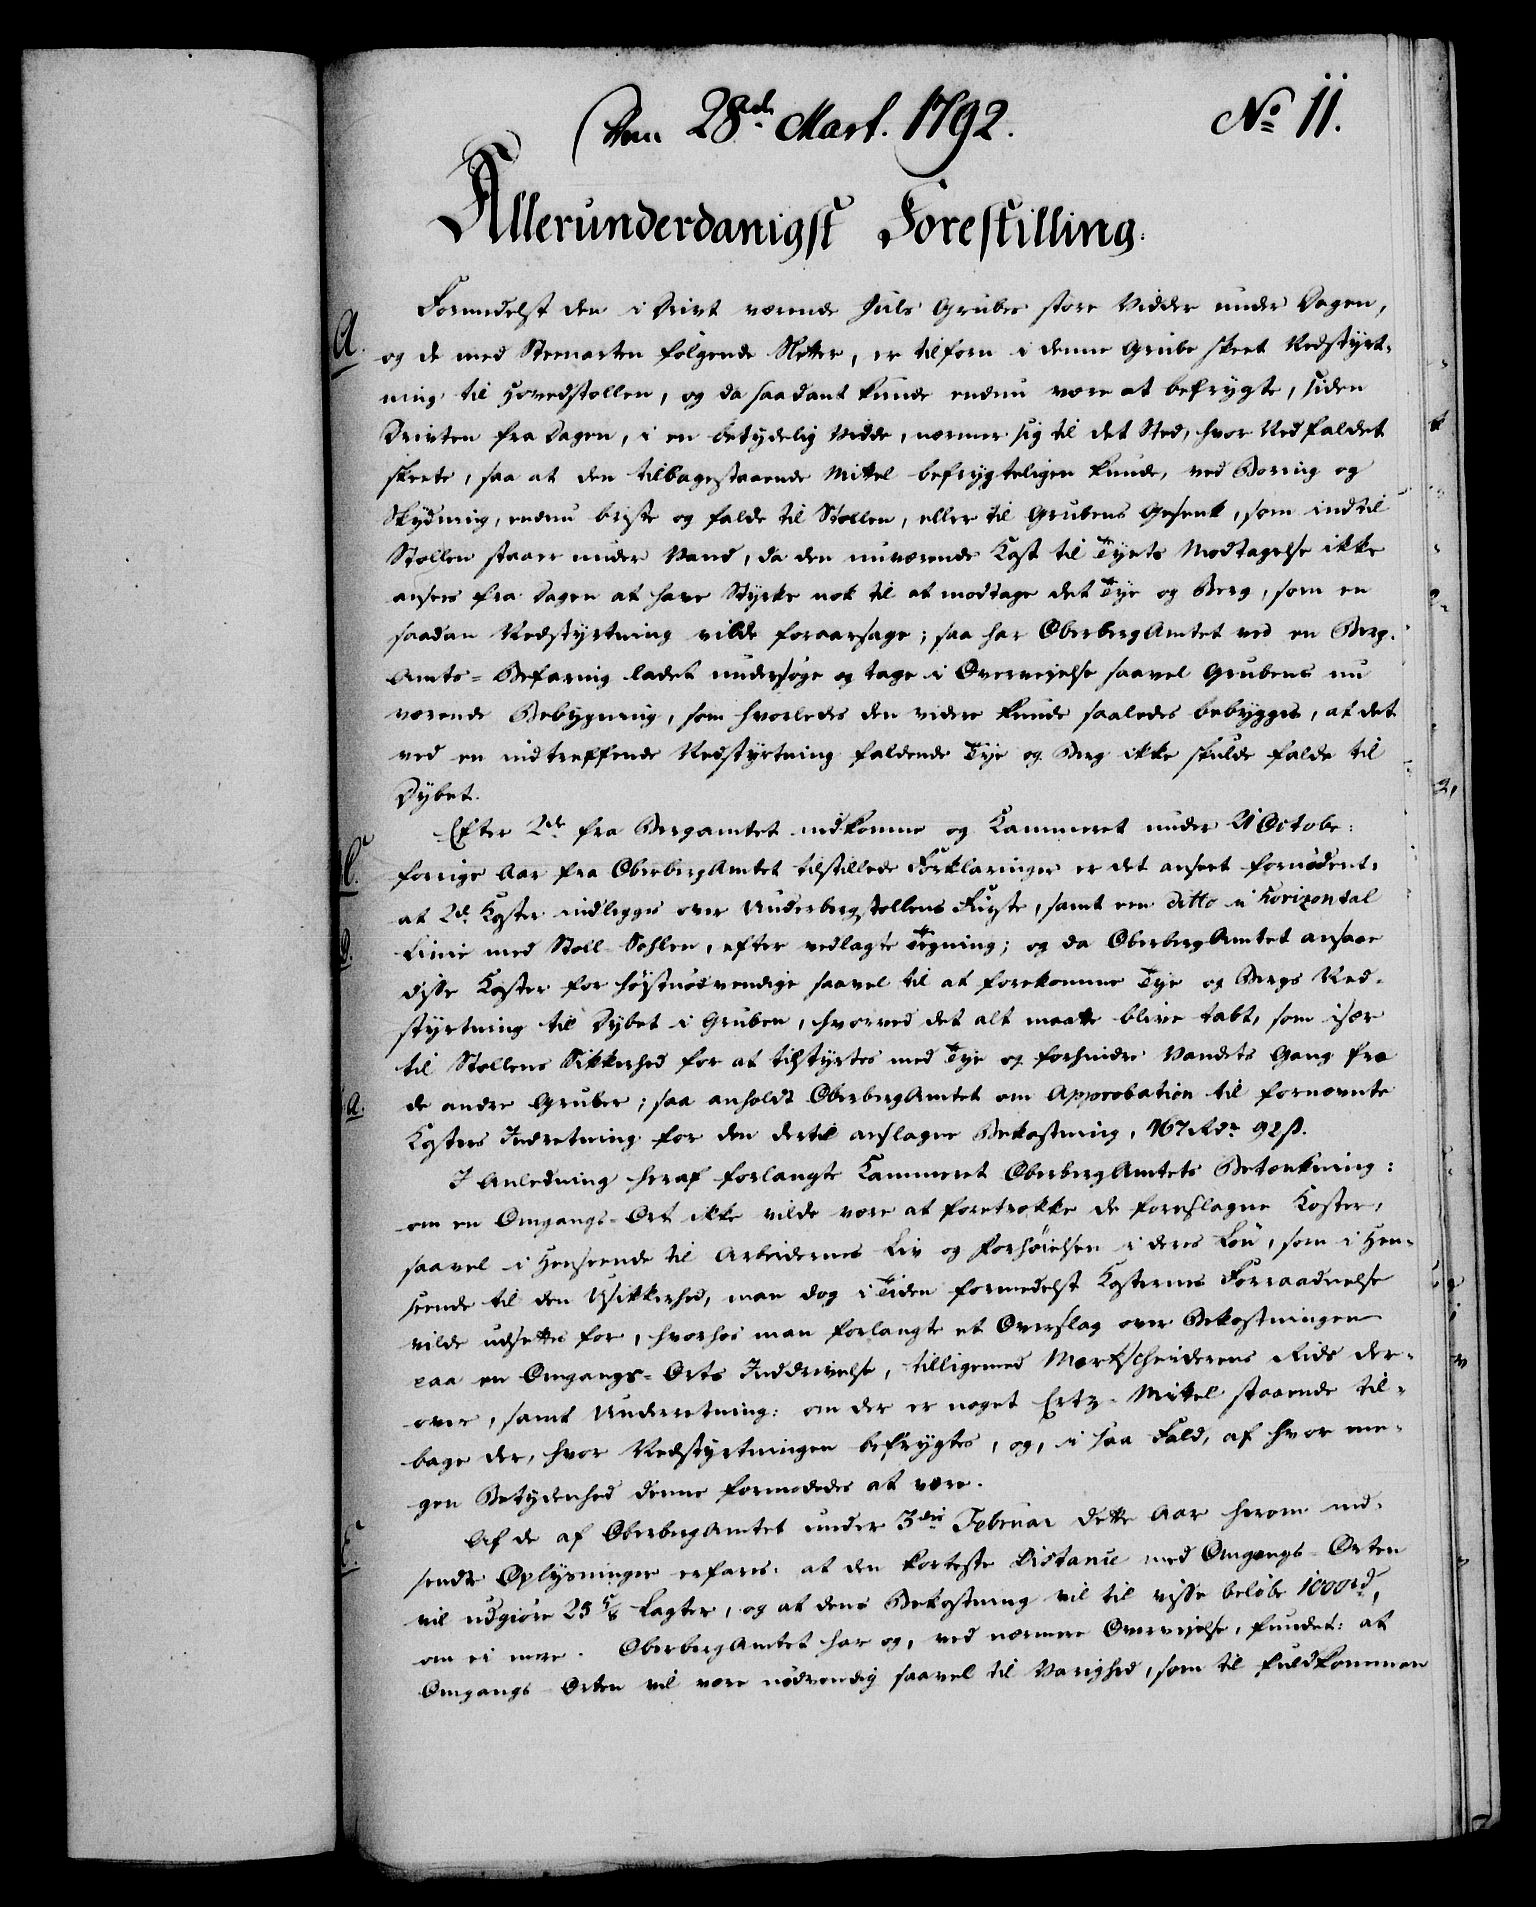 Den 28de Mart. 1792.
No 11.
Allerunderdanigst Forestilling.
A.
Formedelst den i Drivt værende Juls Grubes store Vidde under Dagen,
og de med Steenarten følgende Sletter, er tilforn i denne Grube skeet Nedstyrt-
ning til Hovedstollen, og da saadant kunde endnu være at befrygte, siden
Drivten fra Dagen, i en betydelig Vidde, nærmer sig til det Sted, hvor Nedfaldet
skeete, saa at den tilbagestaaende Mittel befrygteligen kunde, ved Boring og
Skydning, endnu briste og falde til Stollen, eller til Grubens Gesenk, som indtil
Stollen staaer under Vand, da den nuværende Kast til Tyets Modtagelse ikke
ansees fra Dagen at have Styrke nok til at modtage det Tye og Berg, som en
saadan Nedstyrtning vilde foraarsage; saa har OberbergAmtet ved en Berg-
Amts-Befaring ladet undersøge og tage i Overveielse saavel Grubens nu
værende Bebygning, som hvorledes den videre kunde saaledes bebygges, at det
ved en indtreffende Nedstyrtning faldende Tye og Berg ikke skulde falde til
Dybet.
C.
Efter 2de fra Bergamtet indkomne og Kammeret under 21 Octobr:
forrige Aar fra OberbergAmtet tilstillede Forklaringer er det anseet fornødent,
at 2de Kaster indlegges over Underbergstollens Firste, samt een ditto i Horizontal
D.
Linie med Stoll-Sohlen, efter vedlagte Tegning; og da OberbergAmtet ansaae
disse Kaster for høistnødvendige saavel til at forekomme Tye og Bergs Ned-
styrtning til Dybet i Gruben, hvorved det alt maatte blive tabt, som især
til Stollens Sikkerhed for at tilstyrtes med Tye og forhindre Vandets Gang fra
a.
de andre Gruber; saa anholdt OberbergAmtet om Approbation til fornævnte
Kasters Indretning for den dertil anslagne Bekostning, 167 Rdr 92 ß.
I Anledning heraf forlangte Kammeret OberbergAmtets Betænkning:
om en Omgangs-Ort ikke vilde være at foretrække de foreslagne Kaster,
saavel i Henseende til Arbeidernes Liv og Forhøielsen i deres Løn, som i Hen-
seende til den Usikkerhed, man dog i Tiden formedelst Kasternes Forraadnelse
vilde udsettes for, hvorhos man forlangte et Overslag over Bekostningen
paa en Omgangs-Orts Inddrivelse, tilligemed Markscheiderens Rids der-
over, samt Underretning: om der er noget Ertz-Mittel staaende til-
bage der, hvor Nedstyrtningen befrygtes, og, i saa Fald, af hvor me-
gen Betydenhed denne formodedes at være.
E.
Af de af OberbergAmtet under 3die Februar dette Aar herom ind-
sendte Oplysninger erfares: at den korteste Distance med Omgangs-Orten
vil udgiøre 25 5/8 Lagter, og at dens Bekostning vil til visse beløbe 1000 rd,
om ei mere. OberbergAmtet har og, ved nærmere Overveielse, fundet: at
Omgangs-Orten vil være nødvendig saavel til Varighed, som til fuldkommen